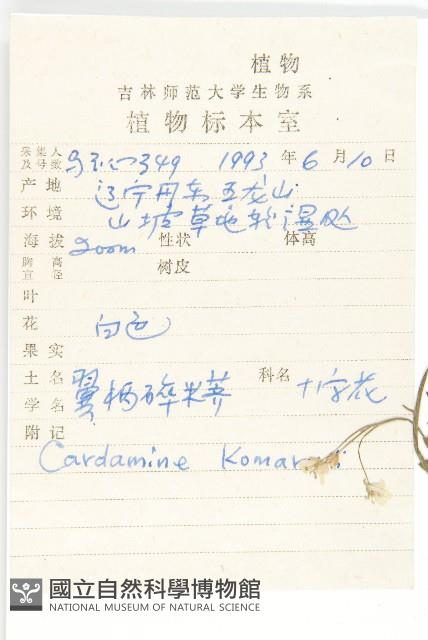 植物
吉林师范大学生物系
植物标本室
采集人及号数 349 1993年6月10日
产地 辽宁丹东五龙山
环境 山坡草地较湿处
海拔 200m 性状 体高
胸高直径 树皮
叶
花 白色
果实
土名 翼柄碎米荠 科名 十字花
学名
附记
Cardamine
國立自然科學博物館
NATIONAL MUSEUM OF NATURAL SCIENCE